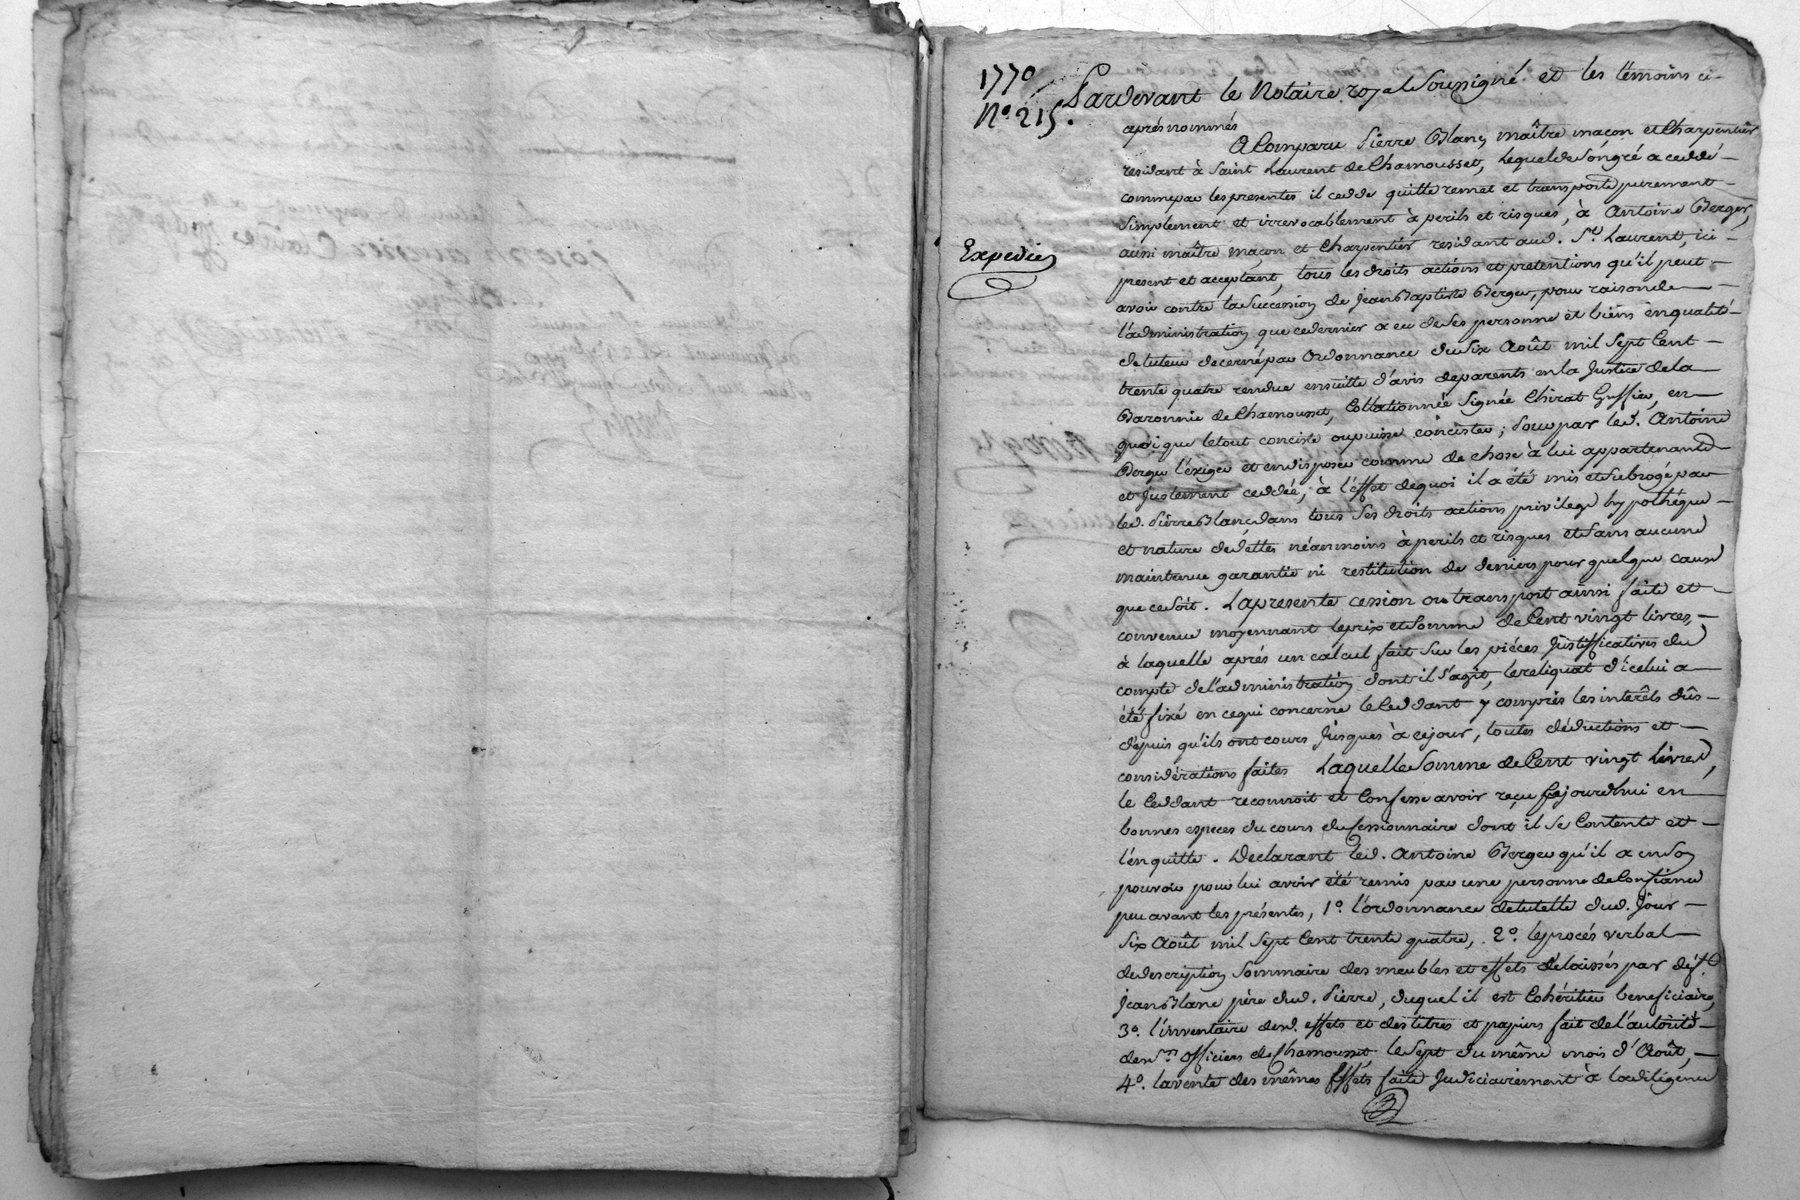 1770
N.° 215.
Pardevant le Notaire royal Soussigné et les témoins ci-
après nommés
A Comparu Pierre Blanc, maître maçon et Charpentier
residant à Saint Laurent de Chamousset, Lequel de Son gré a ceddé
comme par les presentes il cedde quitte remet et transporte purement
Simplement et irrevocablement à perils et risques, à Antoine Berger,
aussi maître maçon et Charpentier residant aud. St. Laurent, ici
present et acceptant, tous les droits actions et pretentions qu'il peut
Expediée
avoir contre la Succession de Jean Baptiste Berger, pour raison de
l'administration que ce dernier a eu de Ses personne et biens en qualité
de tuteur decerné par Ordonnance du Six Août mil Sept Cent
trente quatre rendue ensuitte d'avis de parents en la Justice de la
Baronnie de Chamousset, Collationnée Signée Chirat Greffier, en
quoi que le tout conciste ou puisse concister; Pour par led. Antoine
Berger l'exiger et en disposer comme de chose à lui appartenante
et Justement ceddée, à l'effet de quoi il a été mis et Subrogé par
led. Pierre Blanc dans tous Ses droits actions privilege hypothéque
et nature de dettes néanmoins à perils et risques et Sans aucune
maintenue garantie ni restitution de deniers pour quelque cause
que ce Soit. La presente cession ou transport ainsi faite et
convenue moyennant le prix et Somme de Cent vingt livres,
à laquelle après un calcul fait Sur les piéces Justifficatives du
compte de l'administration dont il S'agit, le reliquat d'icelui a
été fixé en ce qui concerne le Ceddant y compris les interêts dûs
depuis qu'ils ont cours Jusques à ce jour, toutes déductions et
considérations faites Laquelle Somme de Cent vingt Livres,
le Ceddant reconnoit et Confesse avoir reçu cejourd'hui en
bonnes especes du cours du Cessionnaire dont il Se Contente et
l'en quitte. Declarant led. Antoine Berger qu'il a en Son
pouvoir pour lui avoir été remis par une personne de Confiance
peu avant les présentes, 1°. l'ordonnance de tutelle dud. Jour
Six Août mil Sept Cent trente quatre, 2°. le procés verbal
de description Sommaire des meubles et effets délaissés par déf.t
Jean Blanc père dud. Pierre, duquel il est Cohéritier beneficiaire,
3°. l'inventaire desd. effets et des titres et papiers fait de l'autorité
des Srs. Officiers de Chamousset le Sept du même mois d'Août,
4°. la vente des mêmes Effets faite Judiciairement à la diligence